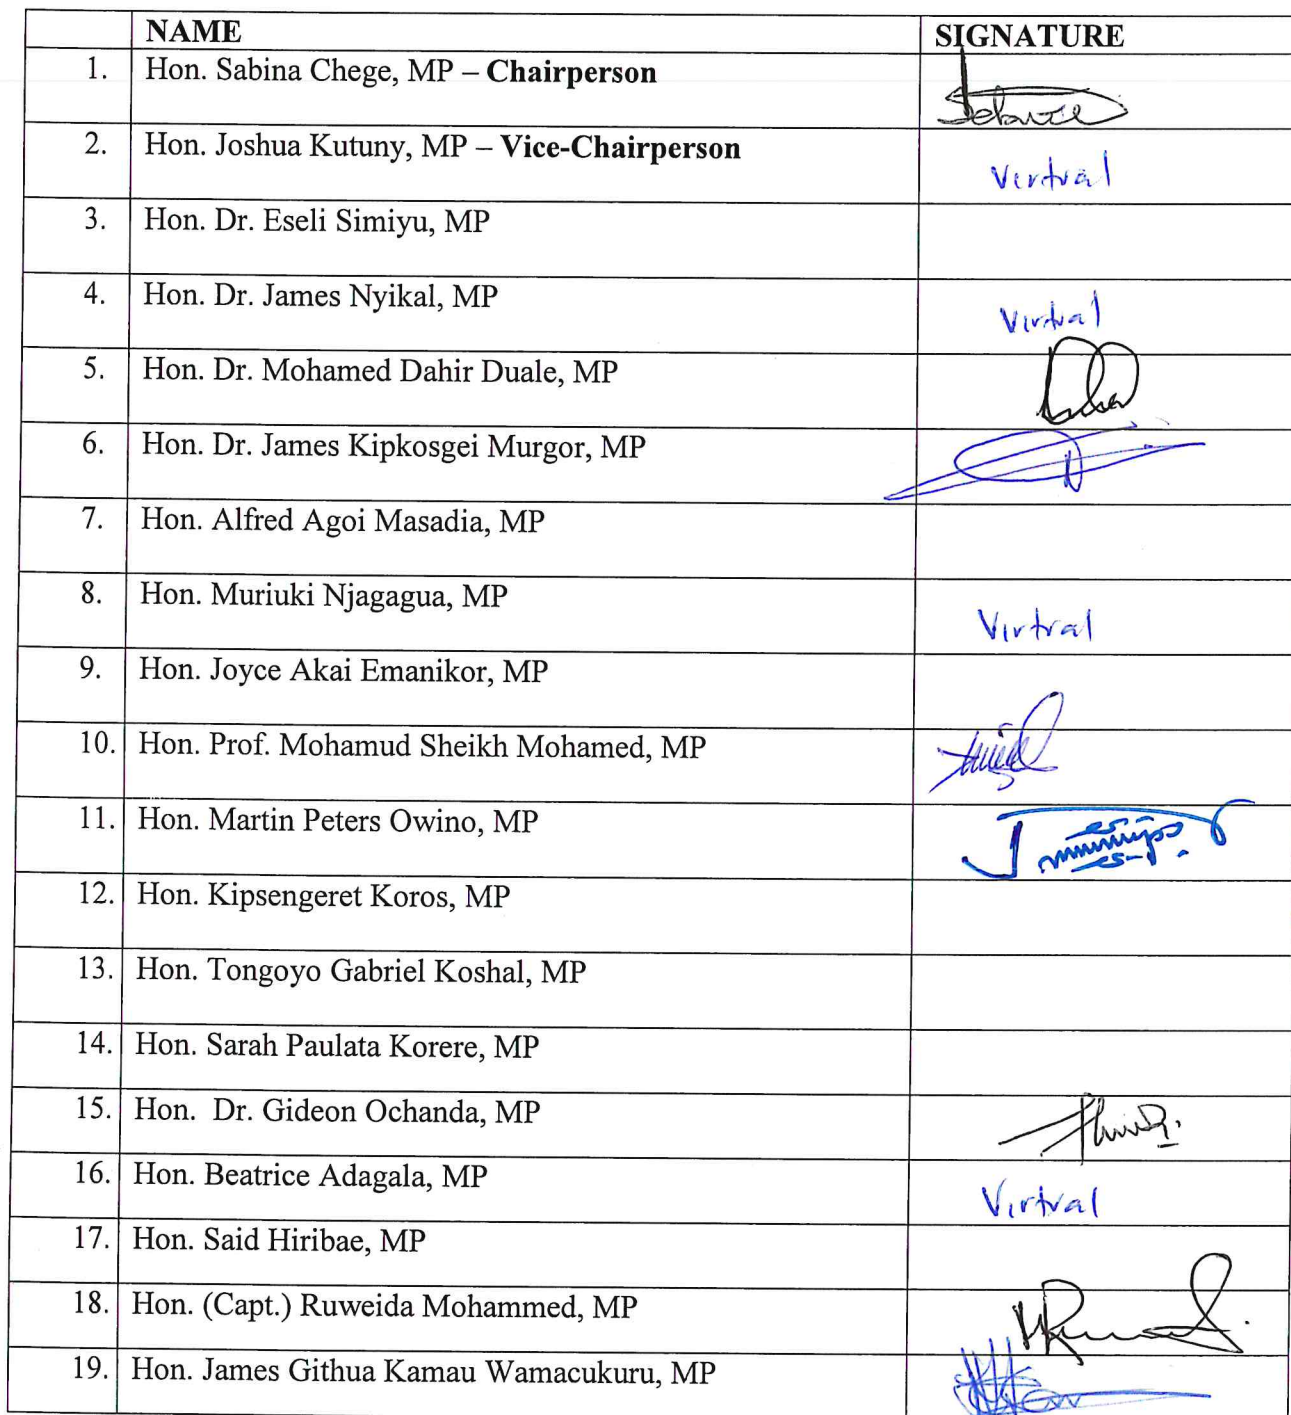 NAME SIGNATURE
1. Hon. Sabina Chege, MP – Chairperson
2. Hon. Joshua Kutuny, MP – Vice-Chairperson Virtual
3. Hon. Dr. Eseli Simiyu, MP
4. Hon. Dr. James Nyikal, MP Virtual
5. Hon. Dr. Mohamed Dahir Duale, MP
6. Hon. Dr. James Kipkosgei Murgor, MP
7. Hon. Alfred Agoi Masadia, MP
8. Hon. Muriuki Njagagua, MP Virtual
9. Hon. Joyce Akai Emanikor, MP
10. Hon. Prof. Mohamud Sheikh Mohamed, MP
11. Hon. Martin Peters Owino, MP
12. Hon. Kipsengeret Koros, MP
13. Hon. Tongoyo Gabriel Koshal, MP
14. Hon. Sarah Paulata Korere, MP
15. Hon. Dr. Gideon Ochanda, MP
16. Hon. Beatrice Adagala, MP Virtual
17. Hon. Said Hiribae, MP
18. Hon. (Capt.) Ruweida Mohammed, MP
19. Hon. James Githua Kamau Wamacukuru, MP